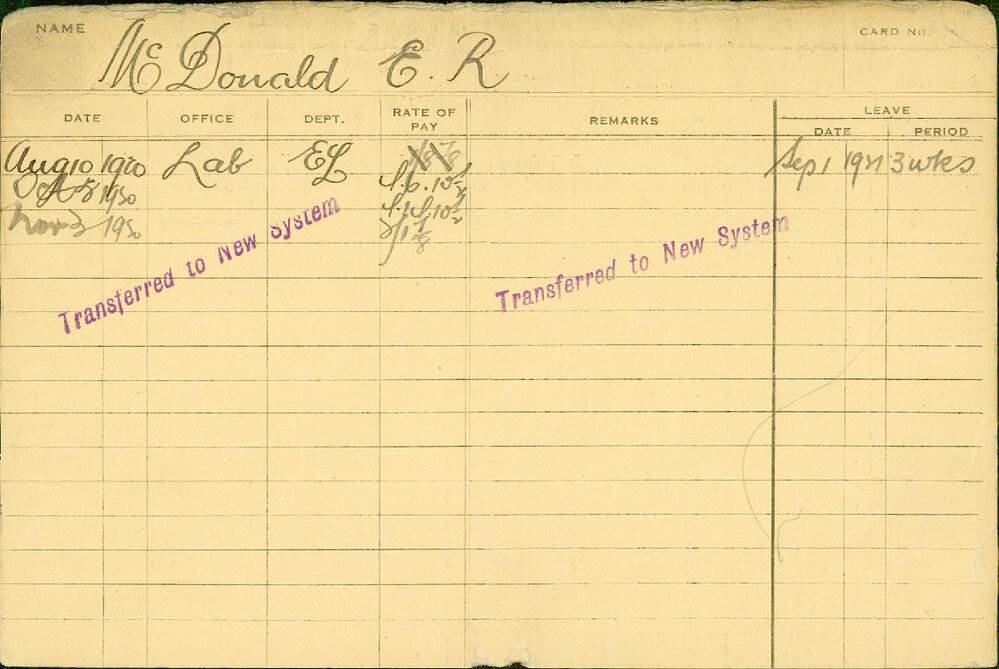 NAME McDonald E. R CARD No.
DATE OFFICE DEPT. RATE OF PAY REMARKS LEAVE
DATE PERIOD
Aug 10 1920 Lab EL Sep 1 1921 3 wks
Oct 5 1920
Nov 3 1920
Transferred to New System
Transferred to New System